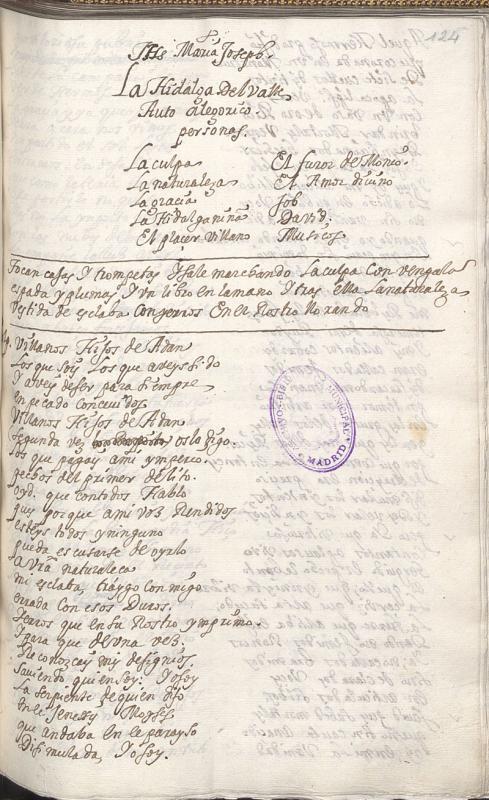 124
Jhs Maria Joseph.
La Hidalga del Valle
Auto alegorico
personas.
La culpa
La naturaleza
La gracia
La Hidalga niña
El placer villano
El furor de Demonio.
El Amor diuino
Job
David.
Musicos
Tocan cajas y trompetas y sale marchando La culpa con vengala
espada y plumas y vn libro en la mano y tras ella La naturaleza
vestida de esclaba con yerros en el Rostro llorando
Villanos Hijos de Adan
Los que soys Los que aveys sido
y aveys de ser para siempre
en pecado concevidos.
Villanos Hijos de Adan
segunda vez os lo digo.
los que pagays a mi ymperio.
pechos del primer delito.
oyd. que con todos Hablo
pues porque a mi voz Rendidos
esteys todos y ninguno
pueda escusarse de oyrlo
La vra naturaleça
mi esclaba, traygo conmigo
errada con esos Duros.
yerros que en su Rostro ymprimo.
y para que de vna vez.
Reconozcays mis designios.
saviendo quien soy. Yo soy
La serpiente de quien dijo
en el Jenesis Moyses
que andaba en le parayso
Disimulada, Yo soy.
BIBLIOTECA MUNICIPAL
MADRID